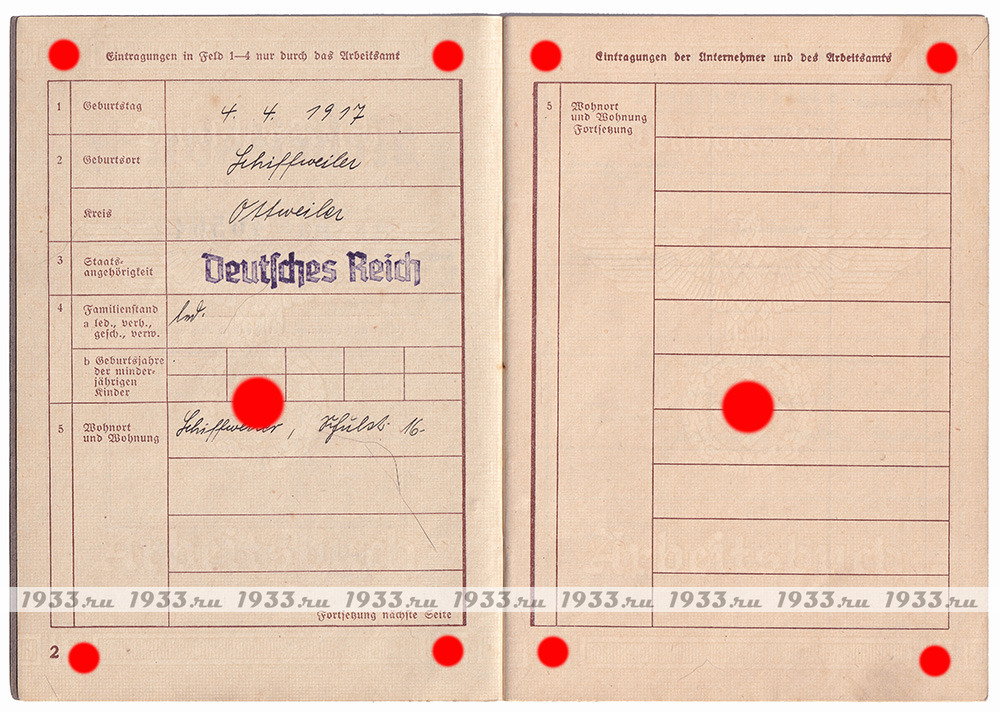 Eintragungen in Feld 1—4 nur durch das Arbeitsamt
1 Geburtstag 4. 4. 1917
2 Geburtsort Schiffweiler
Kreis Ottweiler
3 Staats-
angehörigkeit Deutsches Reich
4 Familienstand
a led., verh.,
gesch., verw. led.
b Geburtsjahre
der minder-
jährigen
Kinder
5 Wohnort
und Wohnung Schiffweiler, Schulst. 16.
Fortsetzung nächste Seite
2
Eintragungen der Unternehmer und des Arbeitsamts
5 Wohnort
und Wohnung
Fortsetzung
1933.ru 1933.ru 1933.ru 1933.ru 1933.ru 1933.ru 1933.ru 1933.ru 1933.ru